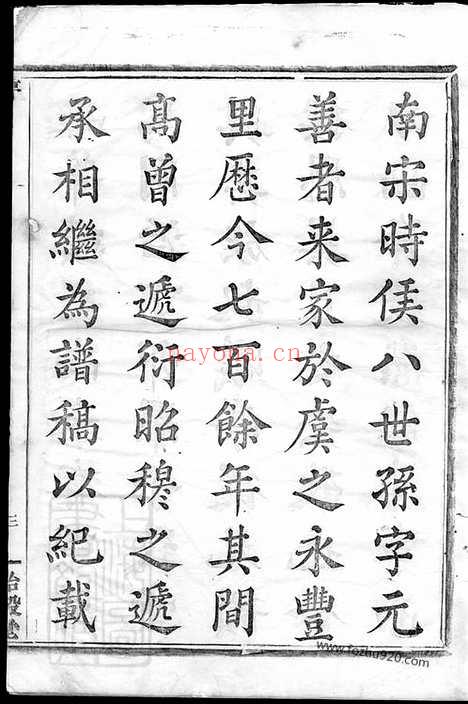 南宋時侯八世孫字元
善者来家於虞之永豐
里歷今七百餘年其間
髙曾之遞衍昭穆之遞
承相繼為譜稿以紀載
三
nayona.cn
www.fozhu920.com